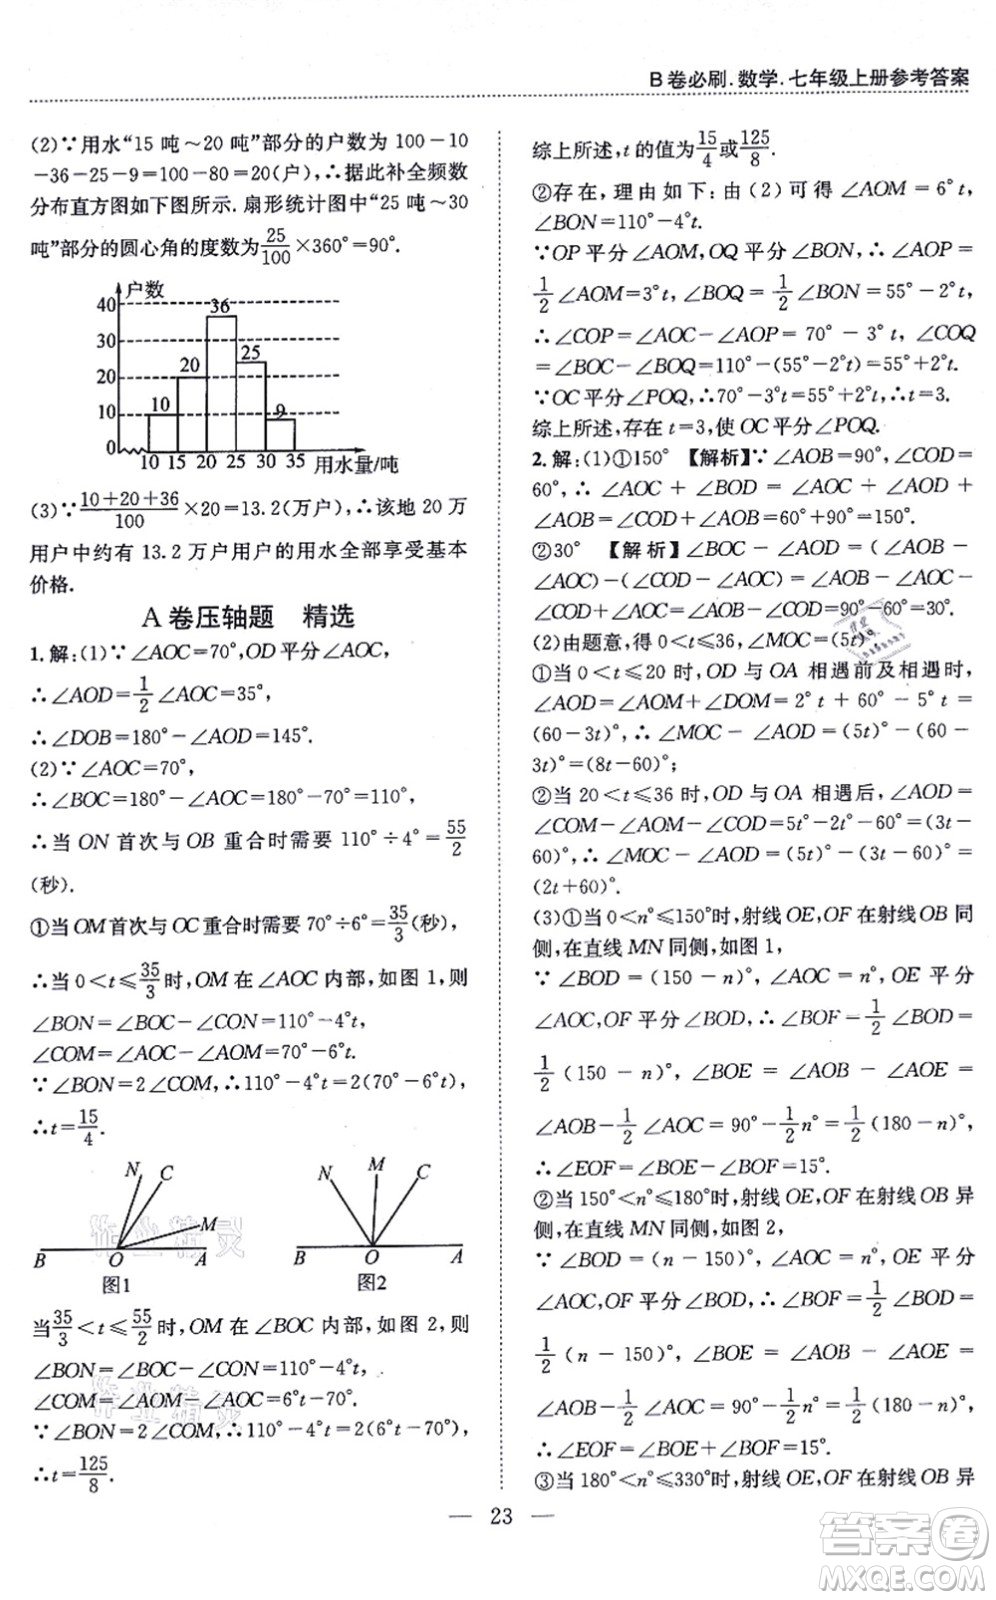 B卷必刷.数学.七年级上册参考答案
(2)∵用水“15 吨～20 吨”部分的户数为 100-10
-36-25-9=100-80=20(户),∴据此补全频数
分布直方图如下图所示.扇形统计图中“25 吨～30
吨”部分的圆心角的度数为25/100×360°=90°.
户数
40
30
20
10
0
10
20
36
25
9
10 15 20 25 30 35 用水量/吨
(3)∵(10+20+36)/100×20=13.2(万户),∴该地 20 万
用户中约有 13.2 万户用户的用水全部享受基本
价格.
A 卷压轴题 精选
1.解:(1)∵∠AOC=70°,OD平分∠AOC,
∴∠AOD=1/2∠AOC=35°,
∴∠DOB=180°-∠AOD=145°.
(2)∵∠AOC=70°,
∴∠BOC=180°-∠AOC=180°-70°=110°,
∴当 ON 首次与 OB 重合时需要 110°÷4°=55/2
(秒).
①当OM首次与OC重合时需要 70°÷6°=35/3(秒),
∴当 0<t≤35/3时,OM 在∠AOC 内部,如图 1,则
∠BON=∠BOC-∠CON=110°-4°t,
∠COM=∠AOC-∠AOM=70°-6°t.
∵∠BON=2∠COM,∴110°-4°t=2(70°-6°t),
∴t=15/4.
N C M B O A
图1
N M C B O A
图2
当35/3<t≤55/2时,OM 在∠BOC 内部,如图 2,则
∠BON=∠BOC-∠CON=110°-4°t,
∠COM=∠AOM-∠AOC=6°t-70°.
∵∠BON=2∠COM,∴110°-4°t=2(6°t-70°),
∴t=125/8.
综上所述,t的值为15/4或125/8.
②存在,理由如下:由(2)可得∠AOM=6°t,
∠BON=110°-4°t.
∵OP平分∠AOM,OQ平分∠BON,∴∠AOP=
1/2∠AOM=3°t,∠BOQ=1/2∠BON=55°-2°t,
∴∠COP=∠AOC-∠AOP=70°-3°t,∠COQ
=∠BOC-∠BOQ=110°-(55°-2°t)=55°+2°t.
∵OC平分∠POQ,∴70°-3°t=55°+2°t,∴t=3.
综上所述,存在 t=3,使 OC平分∠POQ.
2.解:(1)①150° 【解析】∵∠AOB=90°,∠COD=
60°,∴∠AOC+∠BOD=∠AOC+∠AOD+
∠AOB=∠COD+∠AOB=60°+90°=150°.
②30° 【解析】∠BOC-∠AOD=(∠AOB-
∠AOC)-(∠COD-∠AOC)=∠AOB-∠AOC
-∠COD+∠AOC=∠AOB-∠COD=90°-60°=30°.
(2)由题意,得 0<t≤36,∠MOC=(5t)°.
①当 0<t≤20 时,OD 与 OA 相遇前及相遇时,
∠AOD=∠AOM+∠DOM=2°t+60°-5°t=
(60-3t)°,∴∠MOC-∠AOD=(5t)°-(60-
3t)°=(8t-60)°;
②当 20<t≤36 时,OD 与 OA 相遇后,∠AOD=
∠COM-∠AOM-∠COD=5t°-2t°-60°=(3t-
60)°.∴∠MOC-∠AOD=(5t)°-(3t-60)°=
(2t+60)°.
(3)①当 0<n°≤150°时,射线OE,OF在射线OB同
侧,在直线 MN 同侧,如图 1,
∵∠BOD=(150-n)°,∠AOC=n°,OE 平分
∠AOC,OF平分∠BOD,∴∠BOF=1/2∠BOD=
1/2(150-n)°,∠BOE=∠AOB-∠AOE=
∠AOB-1/2∠AOC=90°-1/2n°=1/2(180-n)°,
∴∠EOF=∠BOE-∠BOF=15°.
②当 150°<n°≤180°时,射线OE,OF在射线OB异
侧,在直线 MN 同侧,如图 2,
∵∠BOD=(n-150)°,∠AOC=n°,OE 平分
∠AOC,OF平分∠BOD,∴∠BOF=1/2∠BOD=
1/2(n-150)°,∠BOE=∠AOB-∠AOE=
∠AOB-1/2∠AOC=90°-1/2n°=1/2(180-n)°,
∴∠EOF=∠BOE+∠BOF=15°.
③当 180°<n°≤330°时,射线 OE,OF在射线OB 异
— 23 —
答案卷
MXQE.COM